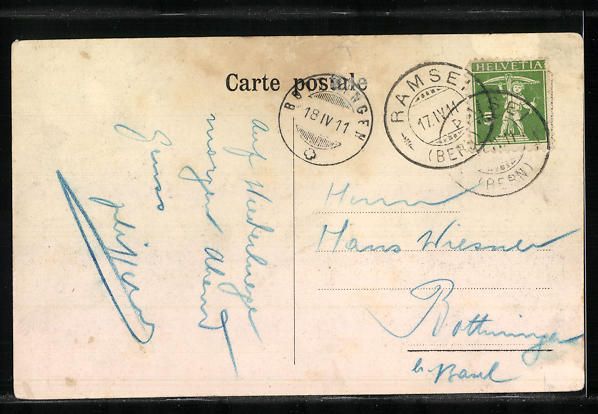 Carte postale
HELVETIA
5
RAMSEI
17.IV.11
(BERN)
(BERN)
BOTTMINGEN
18 IV 11
Auf Wiedersehen
morgen Abend
Gruss
Herrn
Hans Wiesner
Bottmingen
b. Basel